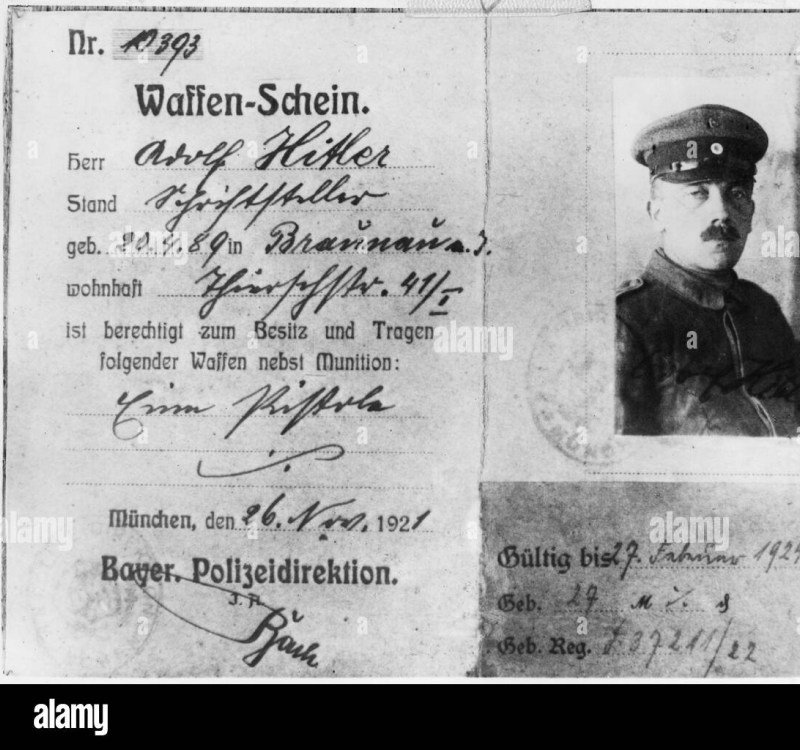 Nr. 10393
Waffen-Schein.
Herr Adolf Hitler
Stand Schriftsteller
geb. 20.4.89 in Braunau a. I.
wohnhaft Thierschstr. 41/I
ist berechtigt zum Besitz und Tragen
folgender Waffen nebst Munition:
Eine Pistole
München, den 26. Nov. 1921
Bayer. Polizeidirektion.
J. A.
Gültig bis 27. Februar 192
Geb. 27 M
Geb. Reg. 37211/22
alamy
alamy
alamy
alamy
alamy